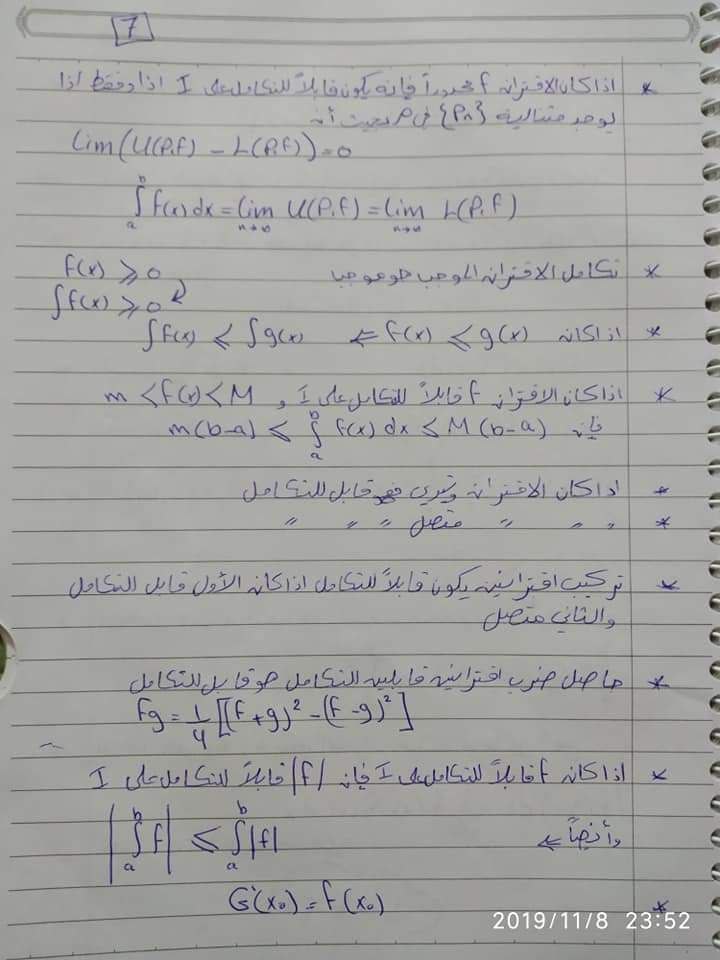 7
* اذا كان الاقتران f محدوداً فإنه يكون قابلاً للتكامل على I اذا وفقط اذا
يوجد متتالية {Pn} في P بحيث أن
Lim(U(P,f) - L(P,f)) = 0
∫_a^b f(x) dx = Lim_{n→∞} U(P,f) = Lim_{n→∞} L(P,f)
* تكامل الاقتران الموجب هو موجب f(x) ≥ 0
∫f(x) ≥ 0
* اذا كان f(x) ≤ g(x) ⇐ ∫f(x) ≤ ∫g(x)
* اذا كان الاقتران f قابلاً للتكامل على I و m < f(x) < M
فإن m(b-a) ≤ ∫_a^b f(x) dx ≤ M(b-a)
* اذا كان الاقتران وتيري فهو قابل للتكامل
* " " " متصل " " "
* تركيب اقترانين يكون قابلاً للتكامل اذا كان الأول قابل للتكامل
والثاني متصل
* حاصل ضرب اقترانين قابلين للتكامل هو قابل للتكامل
fg = 1/4 [(f+g)² - (f-g)²]
* اذا كان f قابلاً للتكامل على I فإن |f| قابلاً للتكامل على I
وأيضاً ⇐ |∫_a^b f| ≤ ∫_a^b |f|
* G'(x₀) = f(x₀)
2019/11/8 23:52